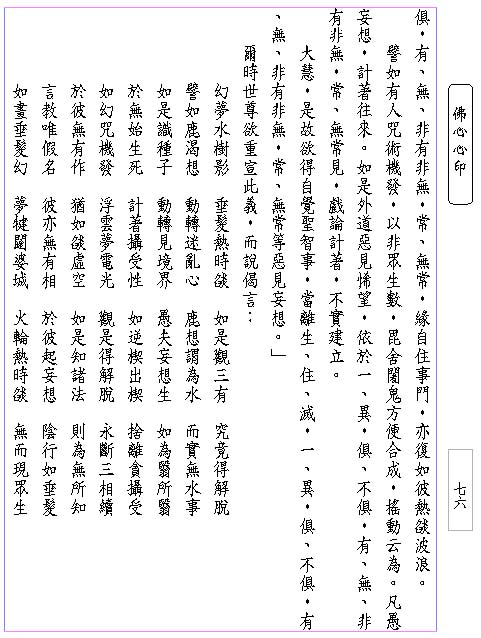 俱、有、無、非有非無、常、無常，緣自住事門，亦復如彼熱燄波浪。
譬如有人咒術機發，以非眾生數，毘舍闍鬼方便合成，搖動云為。凡愚
妄想，計著往來。如是外道惡見悕望，依於一、異，俱、不俱，有、無、非
有非無，常、無常見，戲論計著，不實建立。
大慧，是故欲得自覺聖智事，當離生、住、滅，一、異，俱、不俱，有
、無、非有非無，常、無常等惡見妄想。」
爾時世尊欲重宣此義，而說偈言：
幻夢水樹影　垂髮熱時燄　如是觀三有　究竟得解脫
譬如鹿渴想　動轉迷亂心　鹿想謂為水　而實無水事
如是識種子　動轉見境界　愚夫妄想生　如為翳所翳
於無始生死　計著攝受性　如逆楔出楔　捨離貪攝受
如幻咒機發　浮雲夢電光　觀是得解脫　永斷三相續
於彼無有作　猶如燄虛空　如是知諸法　則為無所知
言教唯假名　彼亦無有相　於彼起妄想　陰行如垂髮
如畫垂髮幻　夢犍闥婆城　火輪熱時燄　無而現眾生
佛心心印
七六